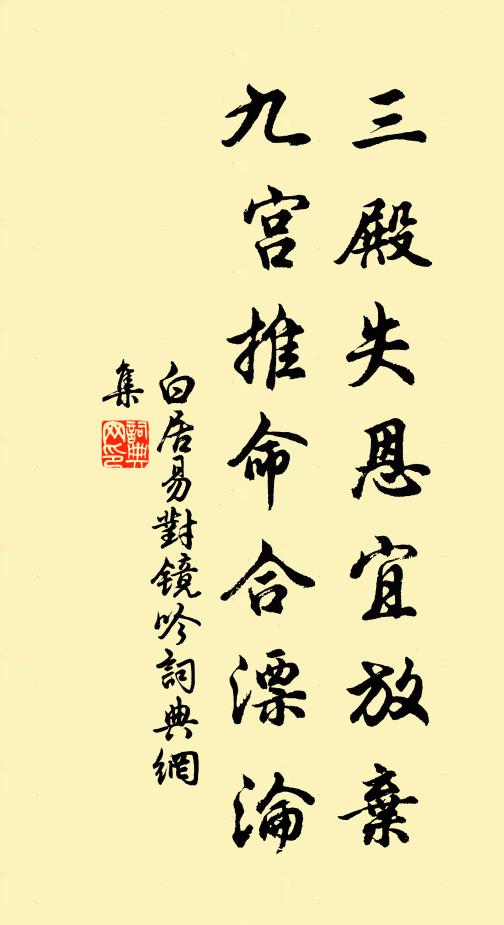 三殿失恩宜放棄
九宮推命合漂淪
白居易對鏡吟詞典網
集
詞典
网印